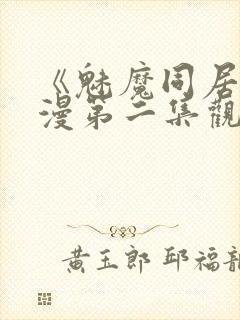 《魅魔同居
漫第二集觀
黃玉郎 邱福龍